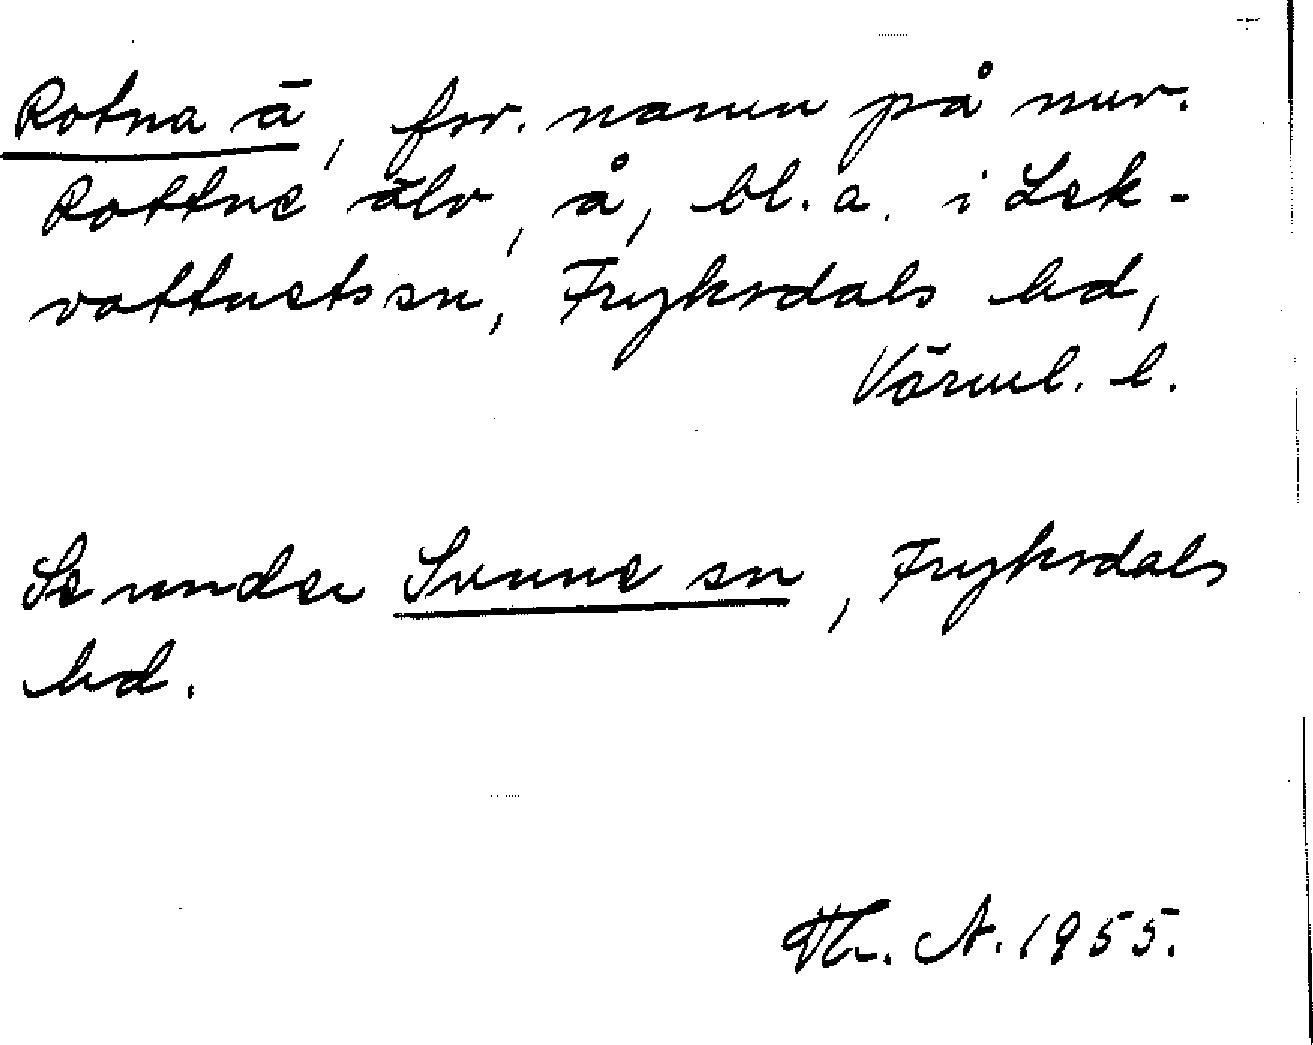 Rotna ā, forr. namn på nuv.
Rottne älv, å, bl. a. i Lek-
vattnets sn, Fryksdals hd,
Värml. l.
Se under Sunne sn, Fryksdals
hd.
Th. A. 1955.